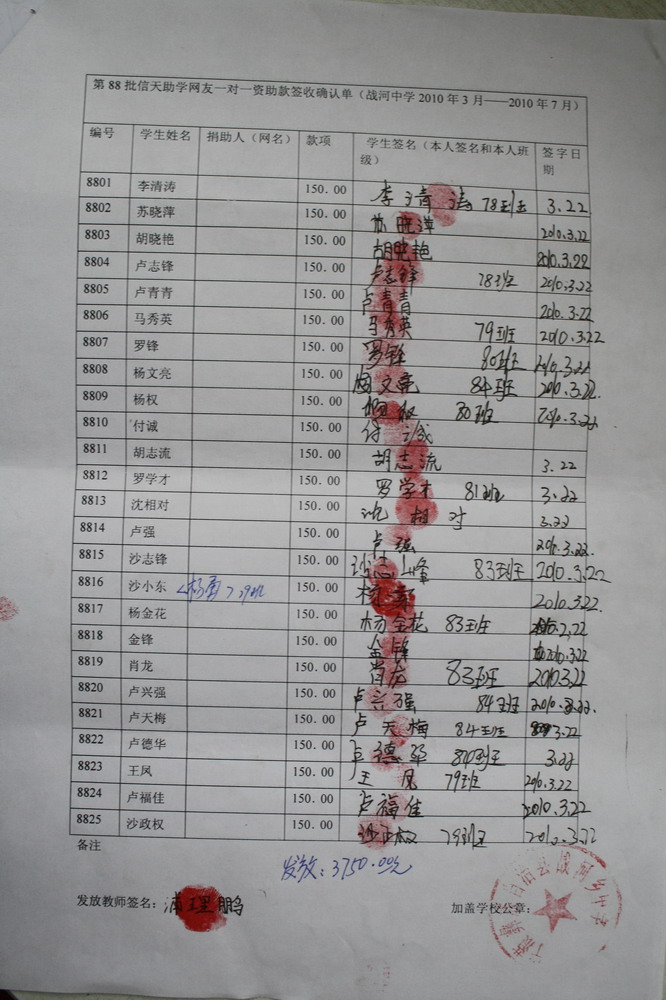 第 88 批信天助学网友一对一资助款签收确认单（战河中学 2010 年 3 月——2010 年 7 月）
编号 学生姓名 捐助人（网名） 款项 学生签名（本人签名和本人班级） 签字日期
8801 李清涛 150.00 李清涛 78班 3.22
8802 苏晓萍 150.00 苏晓萍 2010.3.22
8803 胡晓艳 150.00 胡晓艳 2010.3.22
8804 卢志锋 150.00 卢志锋 78班 2010.3.22
8805 卢青青 150.00 卢青青 2010.3.22
8806 马秀英 150.00 马秀英 79班 2010.3.22
8807 罗锋 150.00 罗锋 80班 2010.3.22
8808 杨文亮 150.00 杨文亮 84班 2010.3.22
8809 杨权 150.00 杨权 80班 2010.3.22
8810 付诚 150.00 付诚
8811 胡志流 150.00 胡志流 3.22
8812 罗学才 150.00 罗学才 81班 3.22
8813 沈相对 150.00 沈相对 3.22
8814 卢强 150.00 卢强 2010.3.22.
8815 沙志锋 150.00 沙志峰 83班 2010.3.22
8816 沙小东 150.00 杨 2010.3.22.
8817 杨金花 150.00 杨金花 83班 2.22
8818 金锋 150.00 金锋 2010.3.22
8819 肖龙 150.00 肖龙 83班 2010.3.22
8820 卢兴强 150.00 卢兴强 84班 2010.3.22.
8821 卢天梅 150.00 卢天梅 84班 3.22
8822 卢德华 150.00 卢德华 80班 3.22
8823 王凤 150.00 王凤 79班 2010.3.22
8824 卢福佳 150.00 卢福佳 2010.3.22
8825 沙政权 150.00 沙正权 79班 2010.3.22
备注
发放：3750.00元
发放教师签名： 浦理鹏 加盖学校公章：
自治县战河乡中学